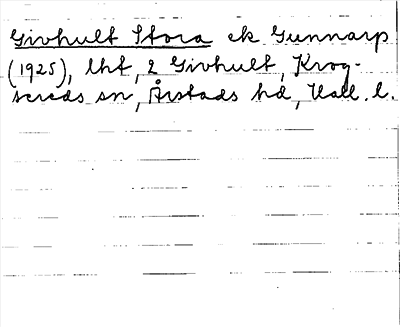 Givhult Stora ek Gunnarp
(1925), lht, 2 Givhult, Krog-
sereds sn, Årstads hd, Hall. l.